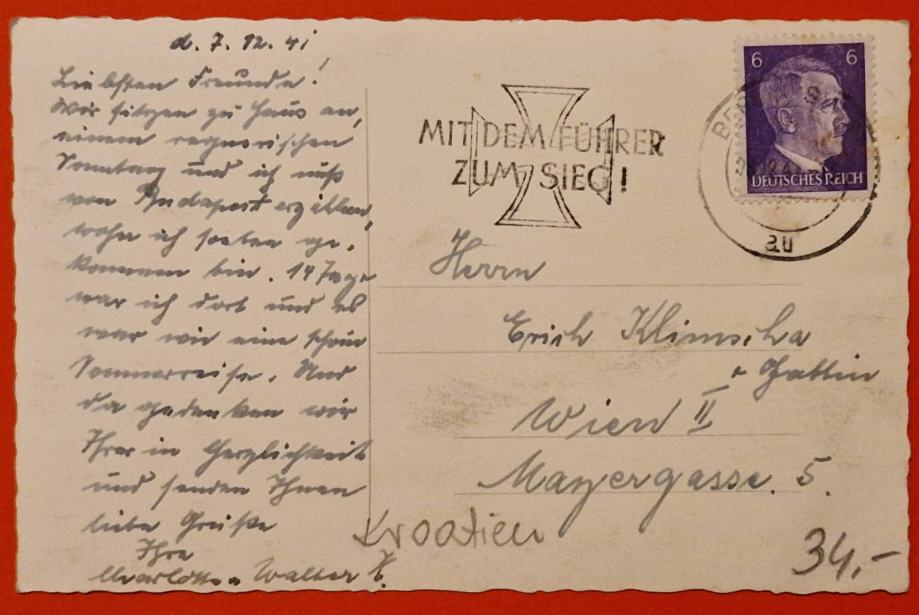 d. 7. 12. 41
Liebsten Freunde!
Wir sitzen zu Haus an
einem regnerischen
Sonntag und ich muß
von Budapest erzählen,
woher ich soeben ge-
kommen bin. 14 Tage
war ich dort und es
war wie eine schöne
Sommerreise. Und
da gedenken wir
Ihrer in Herzlichkeit
und senden Ihnen
liebe Grüße
Ihre
Charlotte u Walter K.
MIT DEM FÜHRER
ZUM SIEG!
6 6
DEUTSCHES REICH
au
Herrn
Erich Klimscha
u Gattin
Wien II
Mayergasse. 5.
Kroatien
34,-